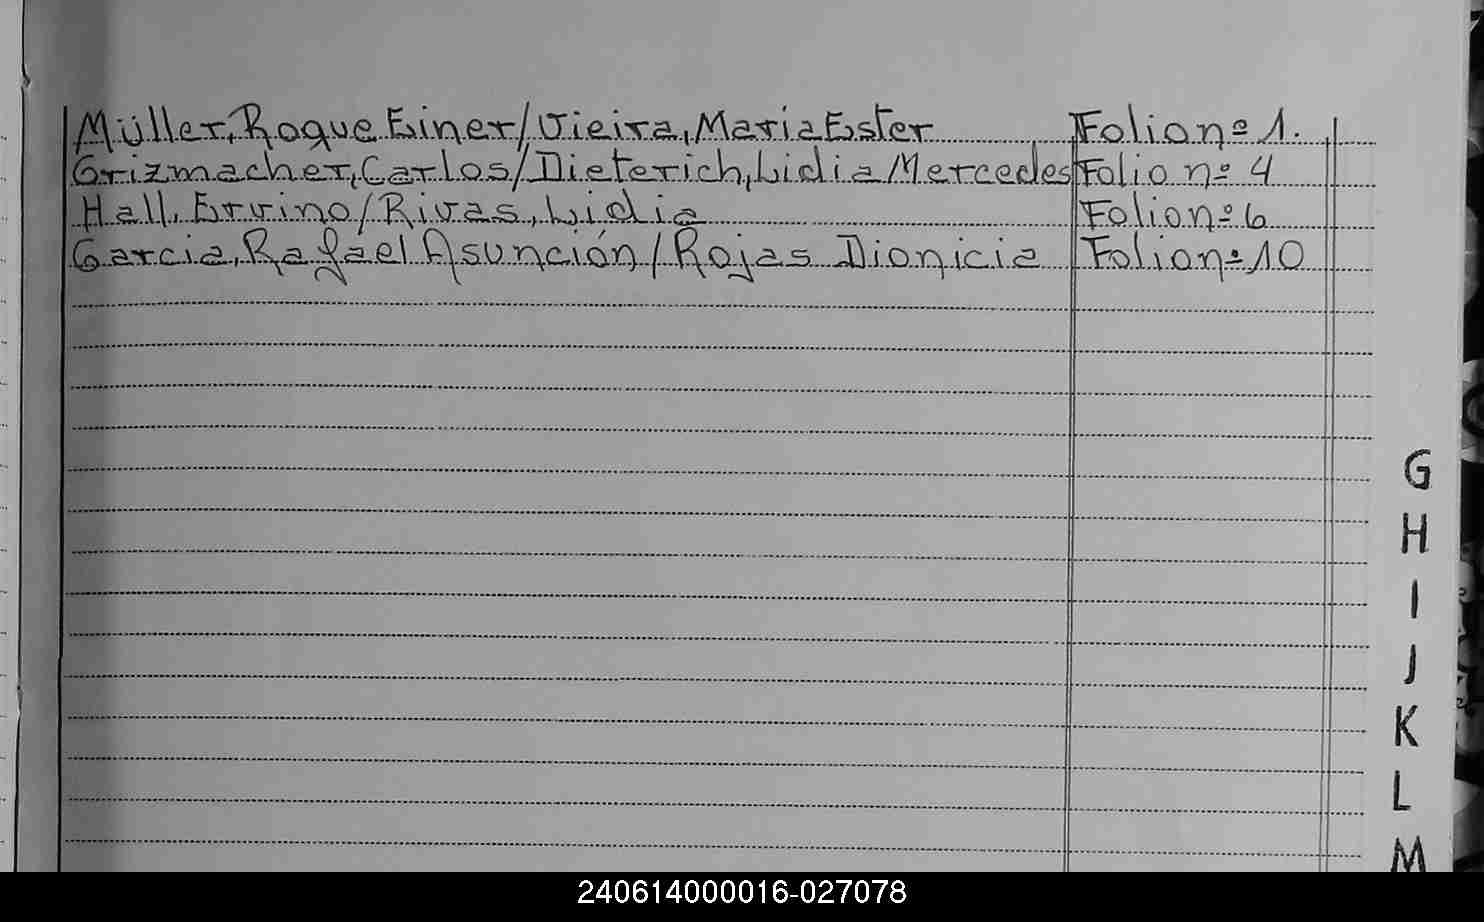 Müller, Roque Einer/Vieira, Maria Ester Folio nº 1.
Grizmacher, Carlos/Dieterich, Lidia Mercedes Folio nº 4
Hall, Ervino/Rivas, Lidia Folio nº 6
Garcia, Rafael Asunción/Rojas Dionicia Folio nº 10
G
H
I
J
K
L
M
240614000016-027078